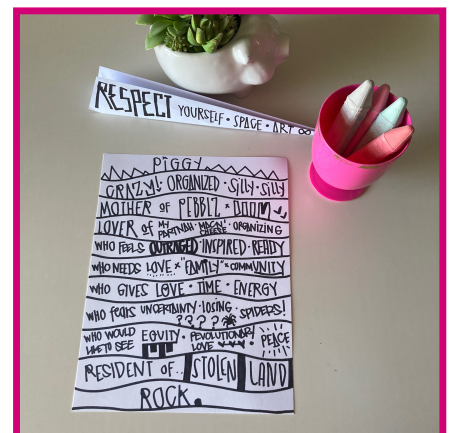 RESPECT YOURSELF • SPACE • ART ∞
PIGGY
CRAZY! • ORGANIZED • SILLY-SILLY
MOTHER OF PEBBLZ × DOOM
LOVER OF MY PARTNAH • MACN! CHEESE • ORGANIZING
WHO FEELS OUTRAGED • INSPIRED • READY
WHO NEEDS LOVE × "FAMILY" × COMMUNITY
WHO GIVES LOVE • TIME • ENERGY
WHO FEARS UNCERTAINTY • LOSING • SPIDERS!
? ? ? ?
WHO WOULD LIKE TO SEE EQUITY • REVOLUTIONARY LOVE • PEACE
RESIDENT OF... STOLEN LAND
ROCK.